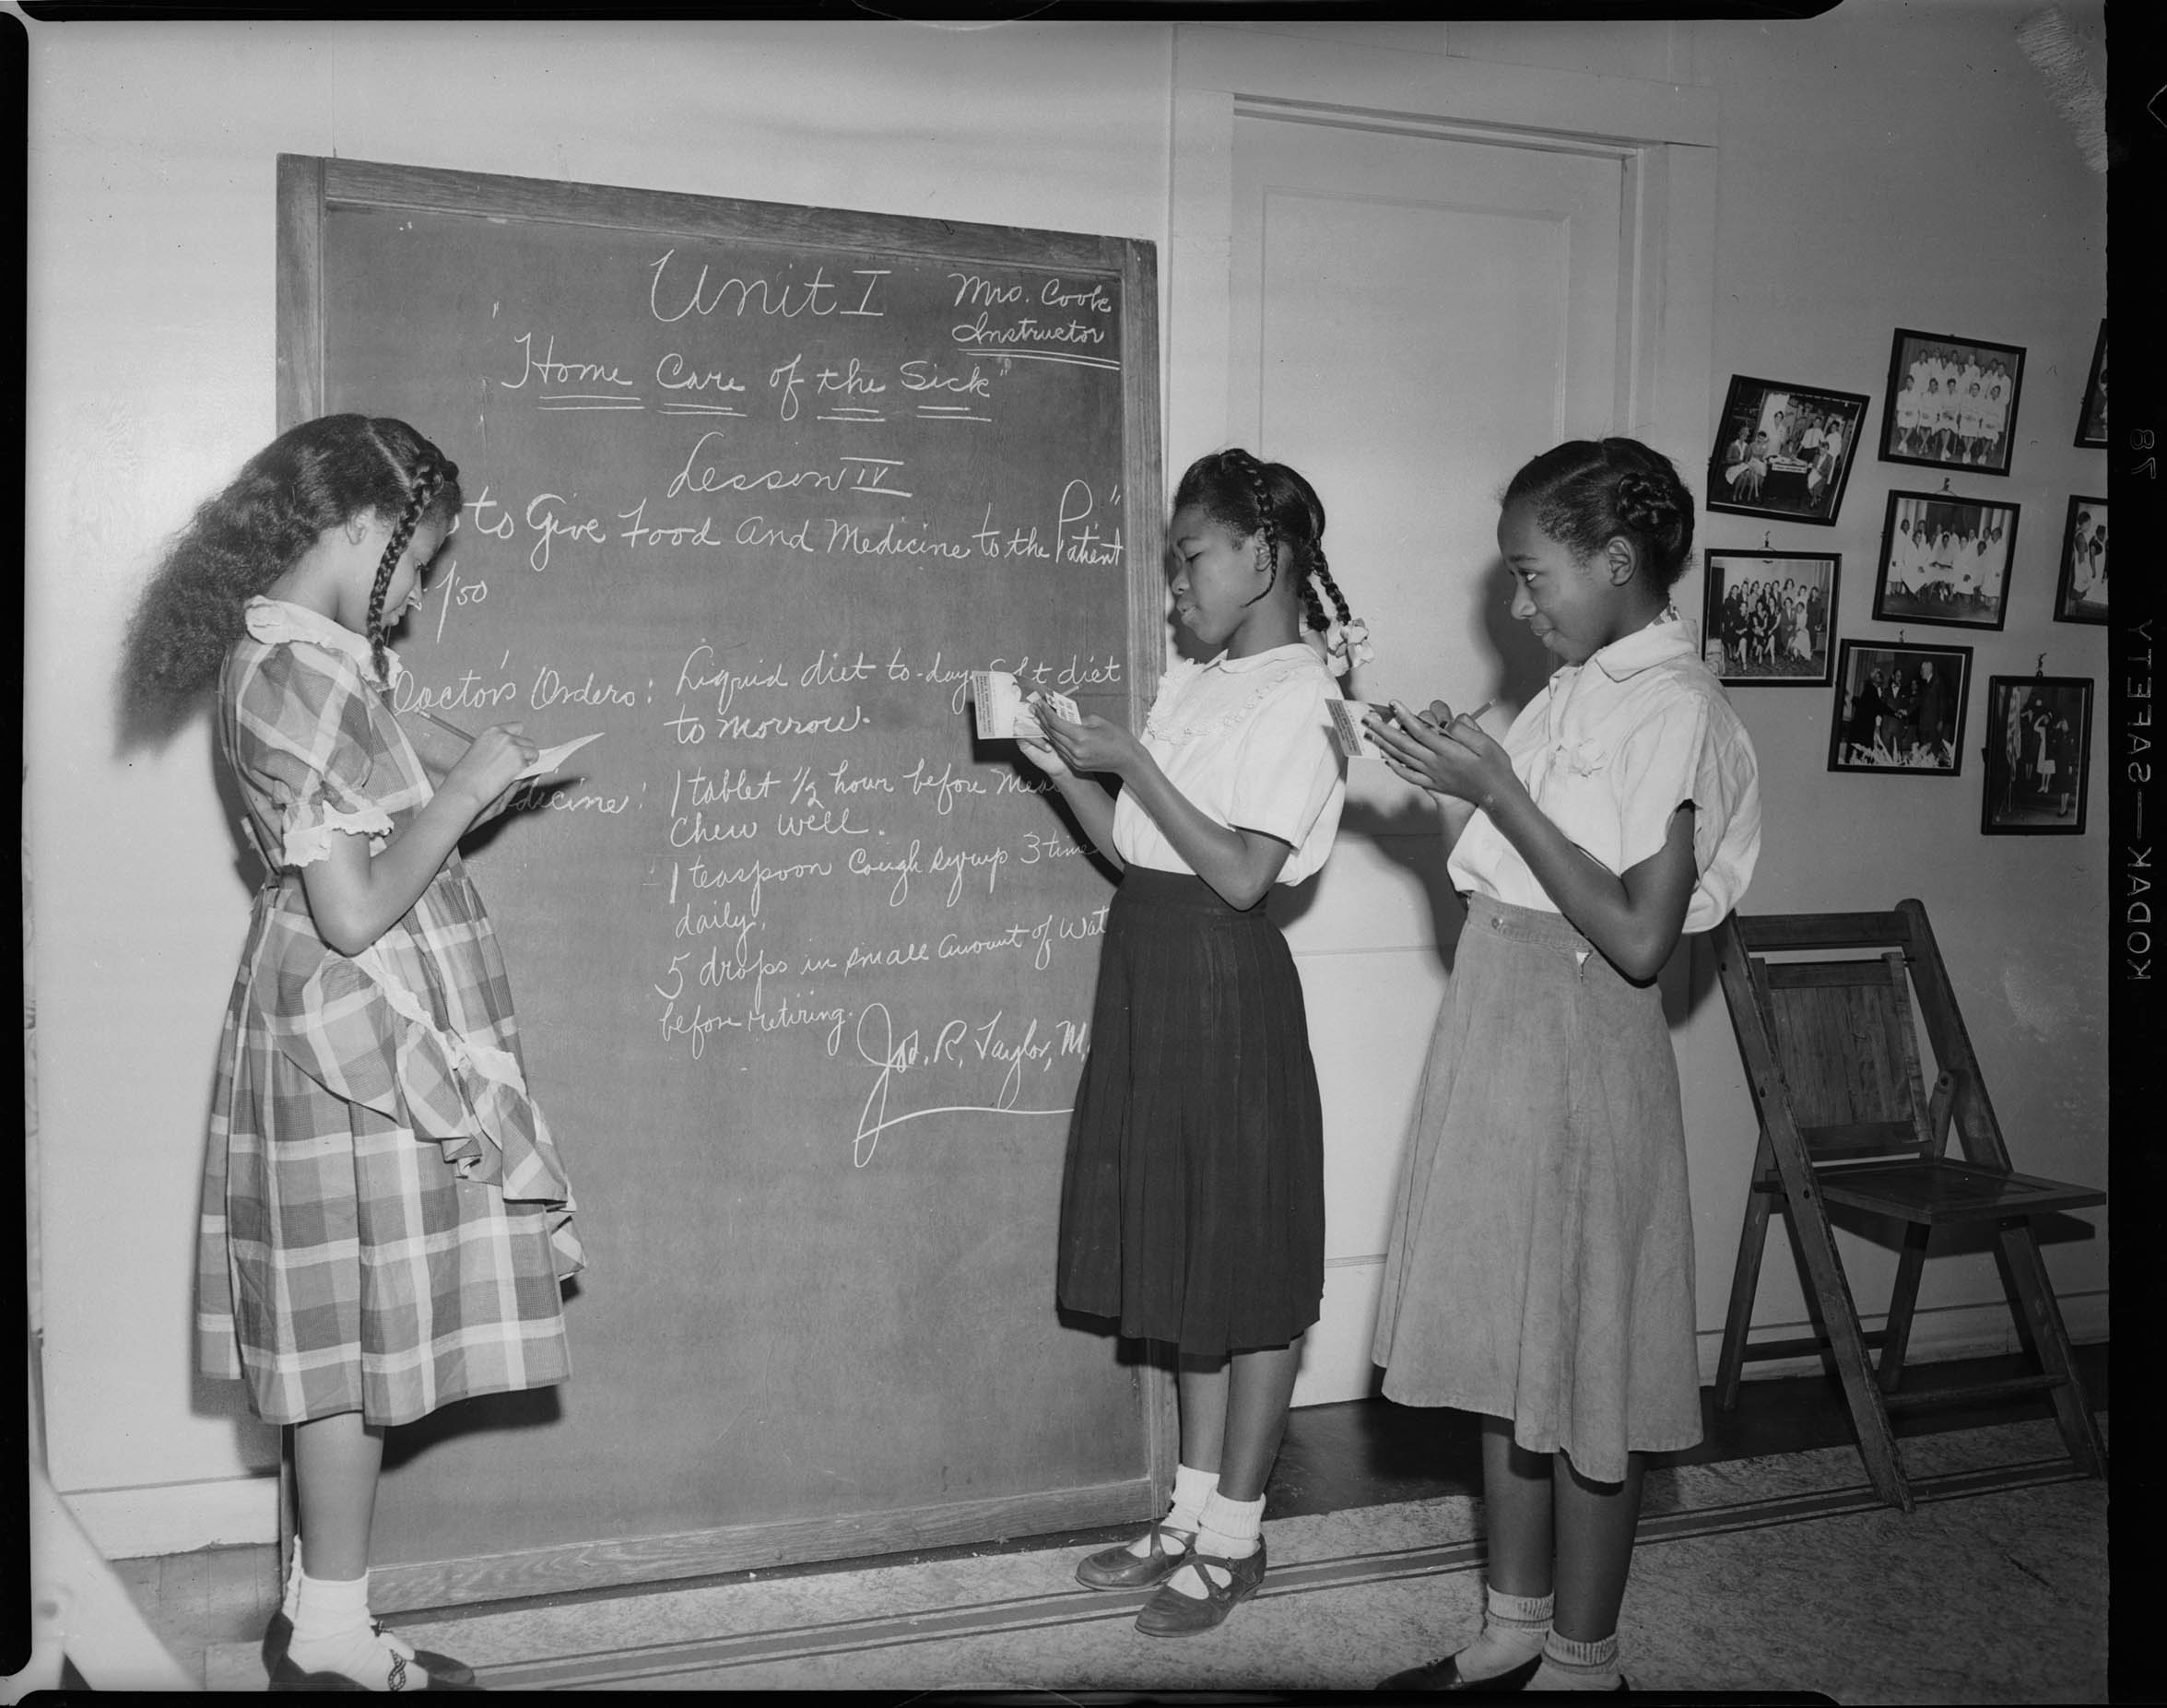 Unit I
Mrs. Cooke
Instructor
"Home Care of the Sick"
Lesson IV
to Give Food and Medicine to the Patient"
1:50
Doctor's Orders: Liquid diet to-day, diet
to morrow.
dicine: 1 tablet 1/2 hour before Mea
Chew well.
1 teaspoon Cough syrup 3 time
daily.
5 drops in small amount of Wat
before retiring.
Jas. R. Taylor, M.
KODAK—SAFETY 78